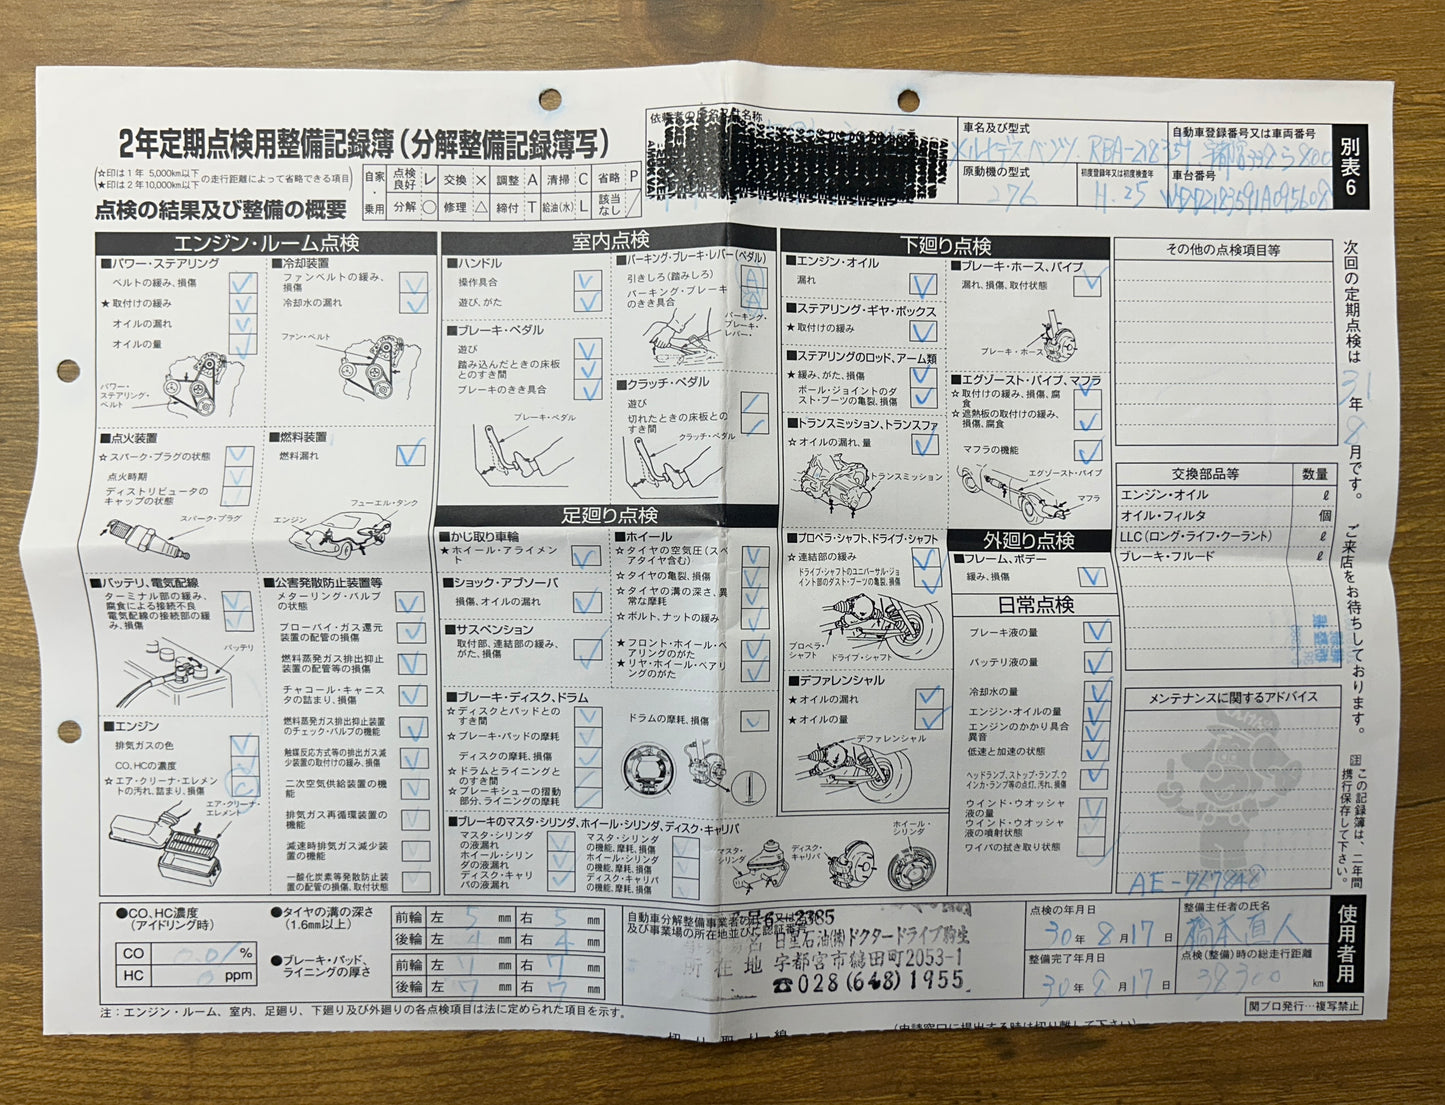 2年定期点検用整備記録簿(分解整備記録簿写)
☆印は1年 5,000km以下
★印は2年10,000km以下 の走行距離によって省略できる項目
点検の結果及び整備の概要
自家乗用 点検良好 レ 交換 × 調整 A 清掃 C 省略 P
分解 ○ 修理 △ 締付 T 給油(水) L 該当なし /
車名及び型式
メルセデスベンツ RBA-218359
自動車登録番号又は車両番号
原動機の型式
276
初度登録年又は初度検査年
H.25
車台番号
WDD2183591A095608
別表6
エンジン・ルーム点検
■パワー・ステアリング
ベルトの緩み、損傷
★取付けの緩み
オイルの漏れ
オイルの量
パワー・ステアリング・ベルト
■冷却装置
ファンベルトの緩み、損傷
冷却水の漏れ
ファン・ベルト
■点火装置
☆スパーク・プラグの状態
点火時期
ディストリビュータのキャップの状態
スパーク・プラグ
■燃料装置
燃料漏れ
フューエル・タンク
エンジン
■バッテリ、電気配線
ターミナル部の緩み、腐食による接続不良
電気配線の接続部の緩み、損傷
バッテリ
■エンジン
排気ガスの色
CO、HCの濃度
☆エア・クリーナ・エレメントの汚れ、詰まり、損傷
エア・クリーナ・エレメント
■公害発散防止装置等
メターリング・バルブの状態
ブローバイ・ガス還元装置の配管の損傷
燃料蒸発ガス排出抑止装置の配管等の損傷
チャコール・キャニスタの詰まり、損傷
燃料蒸発ガス排出抑止装置のチェック・バルブの機能
触媒反応方式等の排出ガス減少装置の取付けの緩み、損傷
二次空気供給装置の機能
排気ガス再循環装置の機能
減速時排気ガス減少装置の機能
一酸化炭素等発散防止装置の配管の損傷、取付状態
室内点検
■ハンドル
操作具合
遊び、がた
■ブレーキ・ペダル
遊び
踏み込んだときの床板とのすき間
ブレーキのきき具合
ブレーキ・ペダル
■パーキング・ブレーキ・レバー(ペダル)
引きしろ(踏みしろ)
パーキング・ブレーキのきき具合
パーキング・ブレーキ・レバー
■クラッチ・ペダル
遊び
切れたときの床板とのすき間
クラッチ・ペダル
足廻り点検
■かじ取り車輪
★ホイール・アライメント
■ショック・アブソーバ
損傷、オイルの漏れ
■サスペンション
取付部、連結部の緩み、がた、損傷
■ホイール
☆タイヤの空気圧(スペアタイヤ含む)
☆タイヤの亀裂、損傷
☆タイヤの溝の深さ、異常な摩耗
☆ボルト、ナットの緩み
★フロント・ホイール・ベアリングのがた
★リヤ・ホイール・ベアリングのがた
■ブレーキ・ディスク、ドラム
☆ディスクとパッドとのすき間
☆ブレーキ・パッドの摩耗
ディスクの摩耗、損傷
☆ドラムとライニングとのすき間
☆ブレーキシューの摺動部分、ライニングの摩耗
ドラムの摩耗、損傷
■ブレーキのマスタ・シリンダ、ホイール・シリンダ、ディスク・キャリパ
マスタ・シリンダの液漏れ
ホイール・シリンダの液漏れ
ディスク・キャリパの液漏れ
マスタ・シリンダの機能、摩耗、損傷
ホイール・シリンダの機能、摩耗、損傷
ディスク・キャリパの機能、摩耗、損傷
マスタ・シリンダ
ディスク・キャリパ
ホイール・シリンダ
下廻り点検
■エンジン・オイル
漏れ
■ステアリング・ギヤ・ボックス
★取付けの緩み
■ステアリングのロッド、アーム類
★緩み、がた、損傷
ボール・ジョイントのダスト・ブーツの亀裂、損傷
■トランスミッション、トランスファ
☆オイルの漏れ、量
トランスミッション
■プロペラ・シャフト、ドライブ・シャフト
☆連結部の緩み
ドライブ・シャフトのユニバーサル・ジョイント部のダスト・ブーツの亀裂、損傷
プロペラ・シャフト
ドライブ・シャフト
■デファレンシャル
★オイルの漏れ
★オイルの量
デファレンシャル
■ブレーキ・ホース、パイプ
漏れ、損傷、取付状態
ブレーキ・ホース
■エグゾースト・パイプ、マフラ
☆取付けの緩み、損傷、腐食
☆遮熱板の取付けの緩み、損傷、腐食
マフラの機能
エグゾースト・パイプ
マフラ
外廻り点検
■フレーム、ボデー
緩み、損傷
日常点検
ブレーキ液の量
バッテリ液の量
冷却水の量
エンジン・オイルの量
エンジンのかかり具合異音
低速と加速の状態
ヘッドランプ、ストップ・ランプ、ウインカ・ランプ等の点灯、汚れ、損傷
ウインド・ウオッシャ液の量
ウインド・ウオッシャ液の噴射状態
ワイパの拭き取り状態
その他の点検項目等
交換部品等 数量
エンジン・オイル ℓ
オイル・フィルタ 個
LLC(ロング・ライフ・クーラント) ℓ
ブレーキ・フルード ℓ
メンテナンスに関するアドバイス
AE-767848
次回の定期点検は31年8月です。 ご来店をお待ちしております。
注 この記録簿は、二年間携行保存して下さい。
●CO、HC濃度(アイドリング時)
CO 0.01 %
HC 0 ppm
●タイヤの溝の深さ(1.6mm以上)
前輪 左 5 mm 右 5 mm
後輪 左 4 mm 右 4 mm
●ブレーキ・パッド、ライニングの厚さ
前輪 左 7 mm 右 7 mm
後輪 左 7 mm 右 7 mm
自動車分解整備事業者の氏名又は名称及び事業場の所在地並びに認証番号
6-2385
日星石油(株)ドクタードライブ駒生
所在地 宇都宮市鶴田町2053-1
☎028(648)1955
点検の年月日
30年8月17日
整備完了年月日
30年8月17日
整備主任者の氏名
橋本直人
点検(整備)時の総走行距離
38300 km
使用者用
注:エンジン・ルーム、室内、足廻り、下廻り及び外廻りの各点検項目は法に定められた項目を示す。
関プロ発行…複写禁止
切り取り線
(申請窓口に提出する時は切り離して下さい)